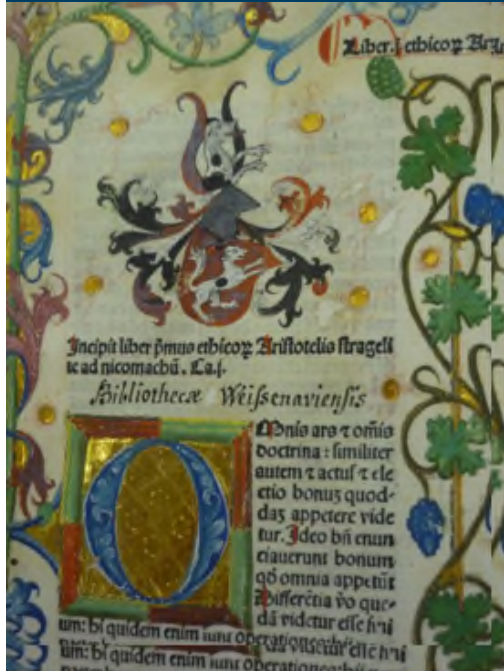 Liber .j. ethicoꝝ Ar
Incipit liber p̄mus ethicoꝝ Aristotelis strageli
te ad nicomachū. Ca.j.
Bibliothecæ Weissenaviensis
OMnis ars ⁊ om̄is
doctrina : similiter
autem ⁊ actus ⁊ ele
ctio bonuꝫ quod-
daꝫ appetere vide
tur. Ideo bn̄ enun
ciauerunt bonum
qd̄ omnia appetūt
Differētia v̄o que-
dā videtur esse
um: hi quidem enim sunt operationes
um: hi quidem enim sunt operationes